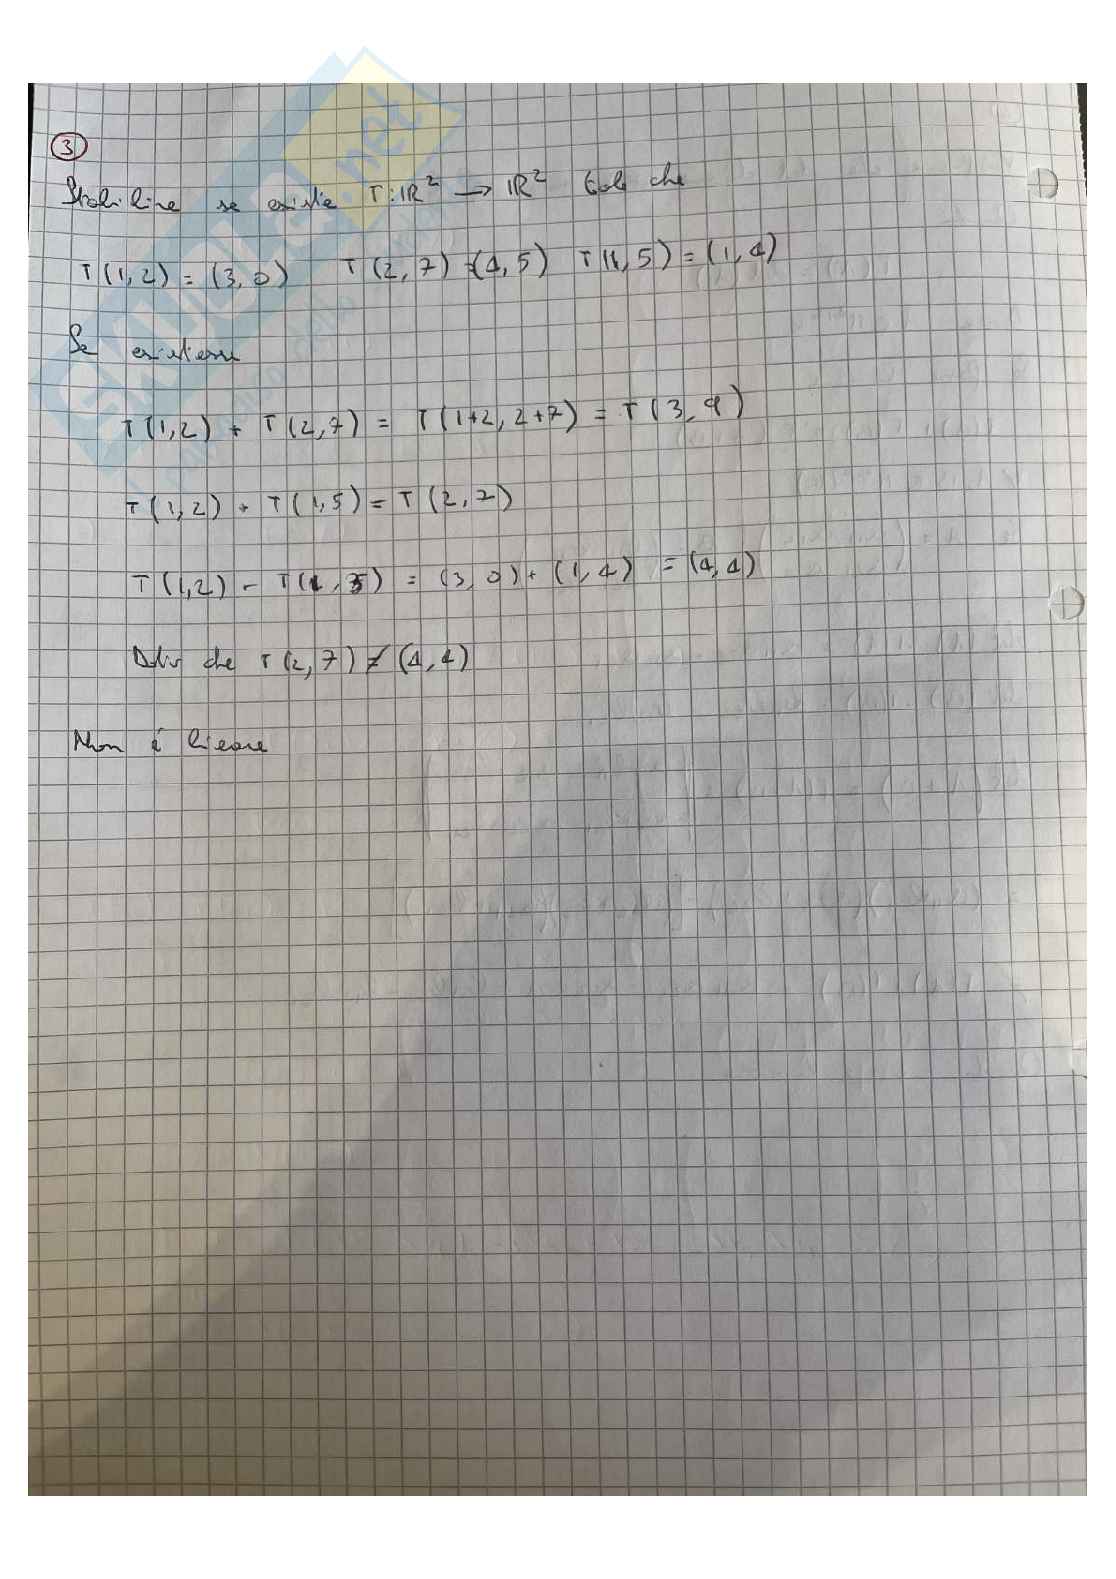 3
Stabilire se esiste T: IR² → IR² tale che
T(1,2) = (3,0) T(2,7) = (4,5) T(1,5) = (1,4)
Se esistesse
T(1,2) + T(2,7) = T(1+2, 2+7) = T(3,9)
T(1,2) + T(1,5) = T(2,7)
T(1,2) - T(1,5) = (3,0) + (1,4) = (4,4)
Dato che T(2,7) ≠ (4,4)
Non è lineare